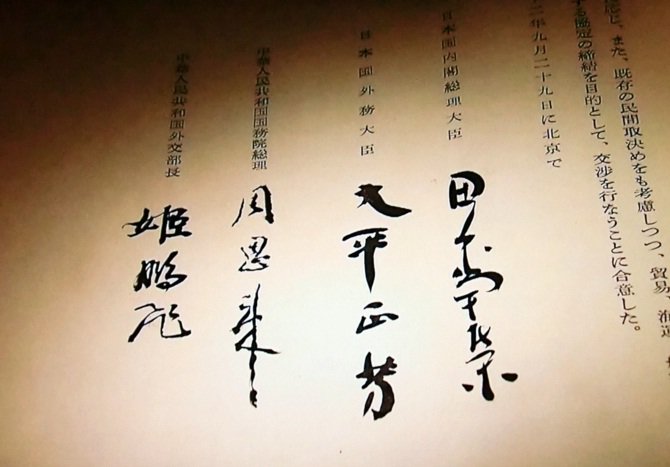 応じ、また、既存の民間取決めをも考慮しつつ、貿易、海運、
する協定の締結を目的として、交渉を行なうことに合意した。
二年九月二十九日に北京で
日本国内閣総理大臣
田中角榮
日本国外務大臣
大平正芳
中華人民共和国国務院総理
周恩来
中華人民共和国外交部長
姫鵬飛